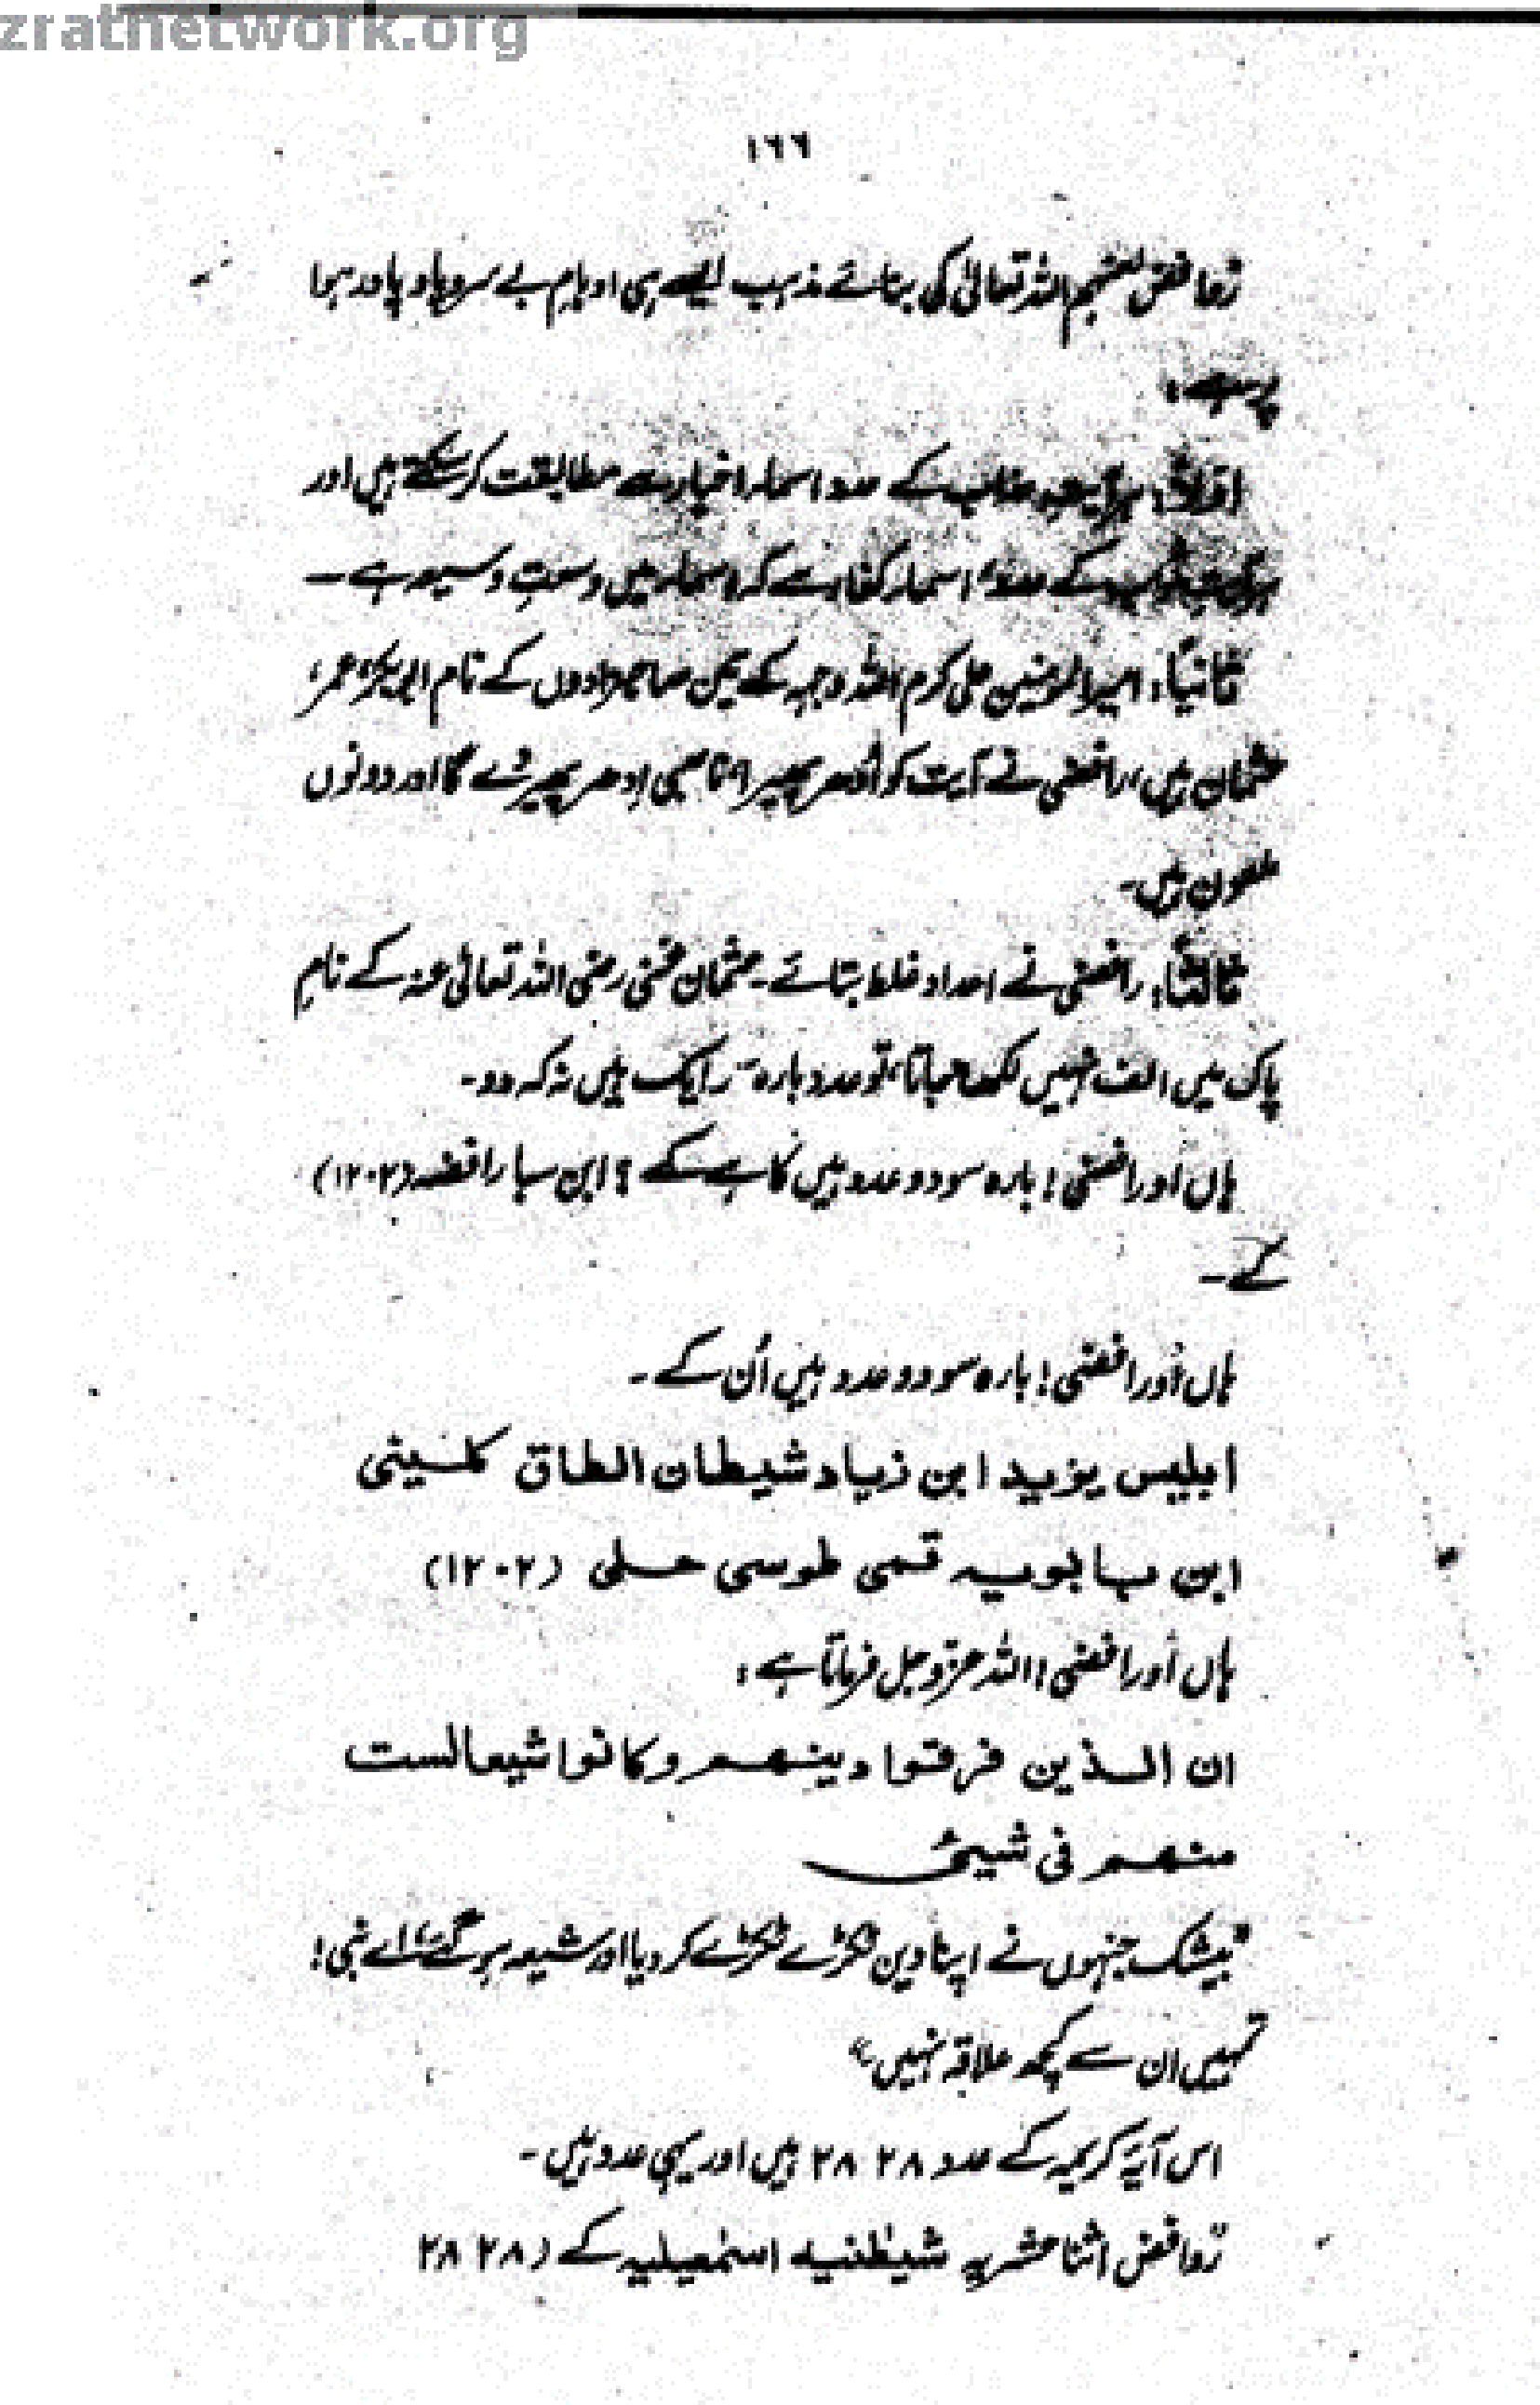 zratnetwork.org
۱۶۶
روافض لعنہم اللہ تعالیٰ کی بنائے مذہب ایسے ہی اوہام بے سروپا و پادر ہوا
پر ہے:
اوّلاً: ہر آیت عذاب کے عدد اسماء اخیار سے مطابقت کرسکتے ہیں اور
ہر آیت ثواب کے عدد اسماء کفار سے کہ اسماء میں وسعتِ وسیعہ ہے۔
ثانیًا: امیرالمومنین علی کرم اللہ وجہہ کے تین صاحبزادوں کے نام ابوبکر، عمر،
عثمان ہیں، رافضی نے آیت کو اُدھر پھیرا ناصبی اِدھر پھیر دے گا اور دونوں
ملعون ہیں۔
ثالثًا: رافضی نے اعداد غلط بتائے۔ عثمان غنی رضی اللہ تعالیٰ عنہ کے نامِ
پاک میں الف نہیں لکھا جاتا، تو عدد بارہ سَو ایک ہیں نہ کہ دو۔
ہاں اَو رافضی! بارہ سو دو عدد ہیں کاہے کے؟ ابن سبا رافضہ (۱۲۰۲)
کے۔
ہاں اَو رافضی! بارہ سو دو عدد ہیں اُن کے۔
ابلیس یزید ابن زیاد شیطان الطاق کلینی
ابن بابویہ قمی طوسی حلی (۱۲۰۲)
ہاں اَو رافضی! اللہ عزوجل فرماتا ہے:
ان الذین فرقوا دینھم وکانوا شیعا لست
منھم فی شیئ
"بیشک جنہوں نے اپنا دین ٹکڑے ٹکڑے کر دیا اور شیعہ ہوگئے، اے نبی!
تمہیں ان سے کچھ علاقہ نہیں"
اس آیۂ کریمہ کے عدد ۲۸ ۲۸ ہیں اور یہی عدد ہیں۔
روافض اثنا عشریہ شیطنیہ اسمٰعیلیہ کے (۲۸ ۲۸